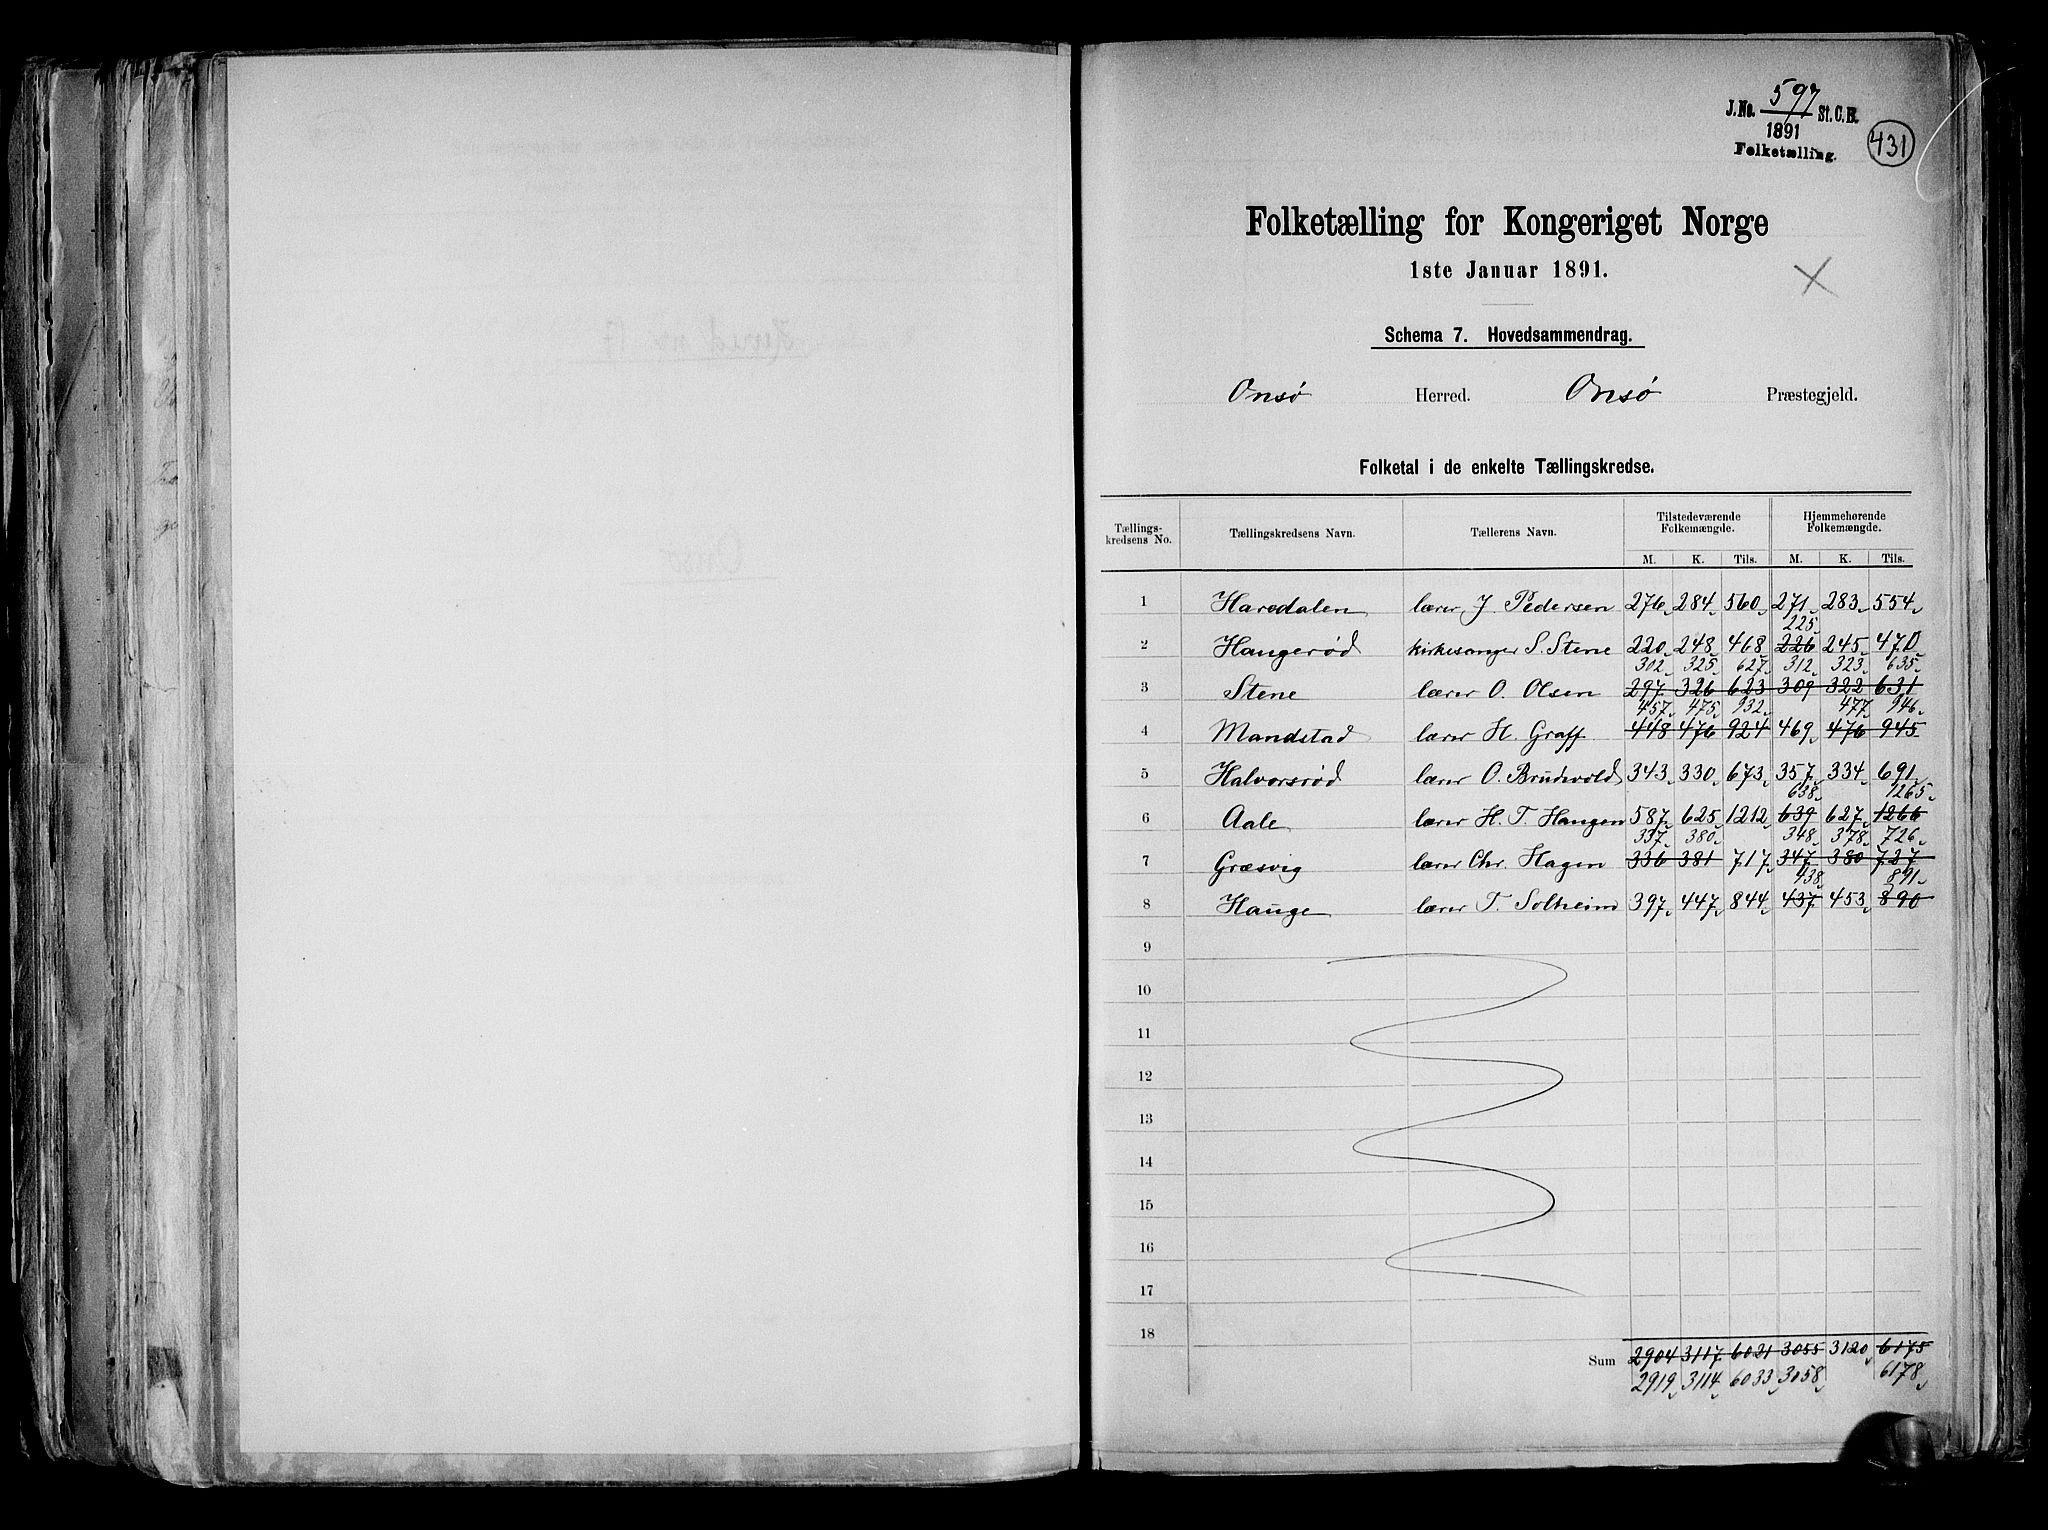 J.No. 597 St.C.B.
1891
Folketælling.
431
Folketælling for Kongeriget Norge
1ste Januar 1891.
Schema 7. Hovedsammendrag.
Onsø Herred. Onsø Præstegjeld.
Folketal i de enkelte Tællingskredse.
Tællings-kredsens No. Tællingskredsens Navn. Tællerens Navn. Tilstedeværende Folkemængde. Hjemmehørende Folkemængde.
M. K. Tils. M. K. Tils.
1 Haredalen lærer J Pedersen 276 284 560 271 283 554
225
2 Haugerød kirkesanger S. Stene 220 248 468 226 245 470
302 325 627 312 323 635
3 Stene lærer O. Olsen 297 326 623 309 322 631
457 475 932 477 946
4 Mandstad lærer H. Graff 448 476 924 469 476 945
5 Halvorsrød lærer O. Brudevold 343 330 673 357 334 691
638 1265
6 Aale lærer H. T. Haugen 587 625 1212 639 627 1266
337 380 348 378 726
7 Græsvig lærer Chr. Hagen 336 381 717 347 380 727
438 891
8 Hauge lærer T. Solheim 397 447 844 437 453 890
9
10
11
12
13
14
15
16
17
18
Sum 2904 3117 6021 3055 3120 6175
2919 3114 6033 3058 6178
Herred no 17
Onsø